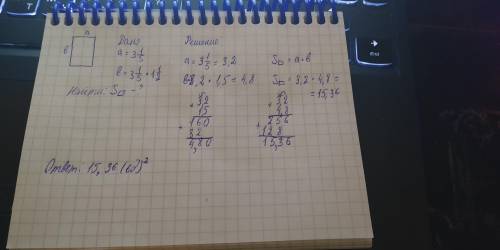 a
в
Дано
a = 3 1/5
в = 3 1/5 · 1 1/2
Найти: S▭ - ?
Решение
a = 3 1/5 = 3,2
в = 3,2 · 1,5 = 4,8
S▭ = a · в
S▭ = 3,2 · 4,8 =
= 15,36
32
15
160
+
32
4,80
32
48
256
+
128
15,36
Ответ: 15,36 (ед)²